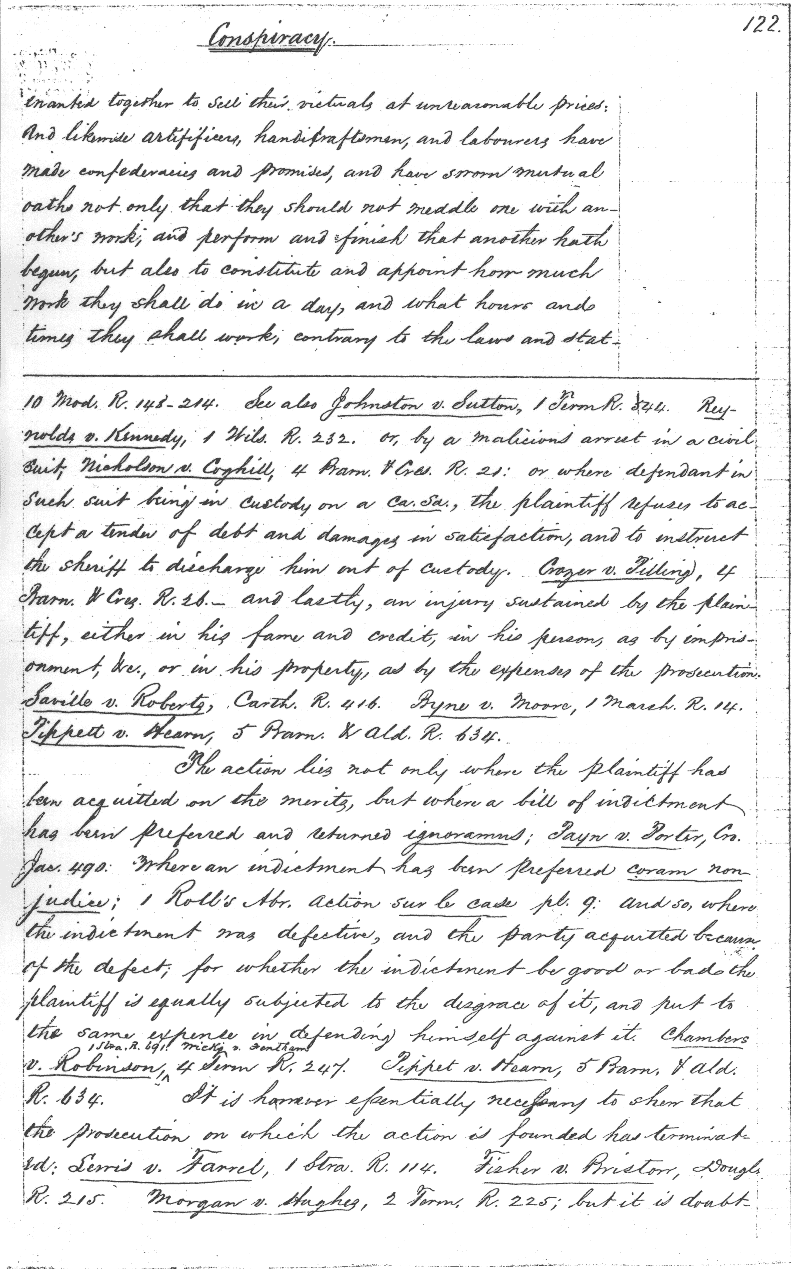 122.
Conspiracy.
enanted together to sell their victuals at unreasonable prices:
And likewise artifificers, handicraftsmen, and labourers have
made confederacies and promises, and have sworn mutual
oaths not only that they should not meddle one with an-
other's work, and perform and finish that another hath
begun, but also to constitute and appoint how much
work they shall do in a day, and what hours and
times they shall work, contrary to the laws and stat-
10 Mod. R. 148-214. See also Johnston v. Sutton, 1 Term R. 544. Rey-
nolds v. Kennedy, 1 Wils. R. 232. or, by a malicious arrest in a civil
suit, Nicholson v. Coghill, 4 Barn. & Cres. R. 21: or where defendant in
such suit being in custody on a ca. sa., the plaintiff refuses to ac-
cept a tender of debt and damages in satisfaction, and to instruct
the sheriff to discharge him out of custody. Crozer v. Pilling, 4
Barn. & Cres. R. 26.— and lastly, an injury sustained by the plain-
tiff, either in his fame and credit, in his person, as by impris-
onment, &c., or in his property, as by the expenses of the prosecution.
Saville v. Roberts, Carth. R. 416. Byne v. Moore, 1 Marsh. R. 14.
Tippett v. Hearn, 5 Barn. & Ald. R. 634.
The action lies not only where the plaintiff has
been acquitted on the merits, but where a bill of indictment
has been preferred and returned ignoramus; Payn v. Porter, Cro.
Jac. 490: Where an indictment has been preferred coram non
judice; 1 Roll's Abr. action sur le case pl. 9: and so, where
the indictment was defective, and the party acquitted because
of the defect; for whether the indictment be good or bad the
plaintiff is equally subjected to the disgrace of it, and put to
the same expense in defending himself against it. Chambers
1 Stra. R. 691. Wicks v. Fentham
v. Robinson, ^ 4 Term R. 247. Tippet v. Hearn, 5 Barn. & Ald.
R. 634. It is however essentially necessary to shew that
the prosecution on which the action is founded has terminat-
ed: Lewis v. Farrel, 1 Stra. R. 114. Fisher v. Bristow, Dougl.
R. 215. Morgan v. Hughes, 2 Term. R. 225; but it is doubt-